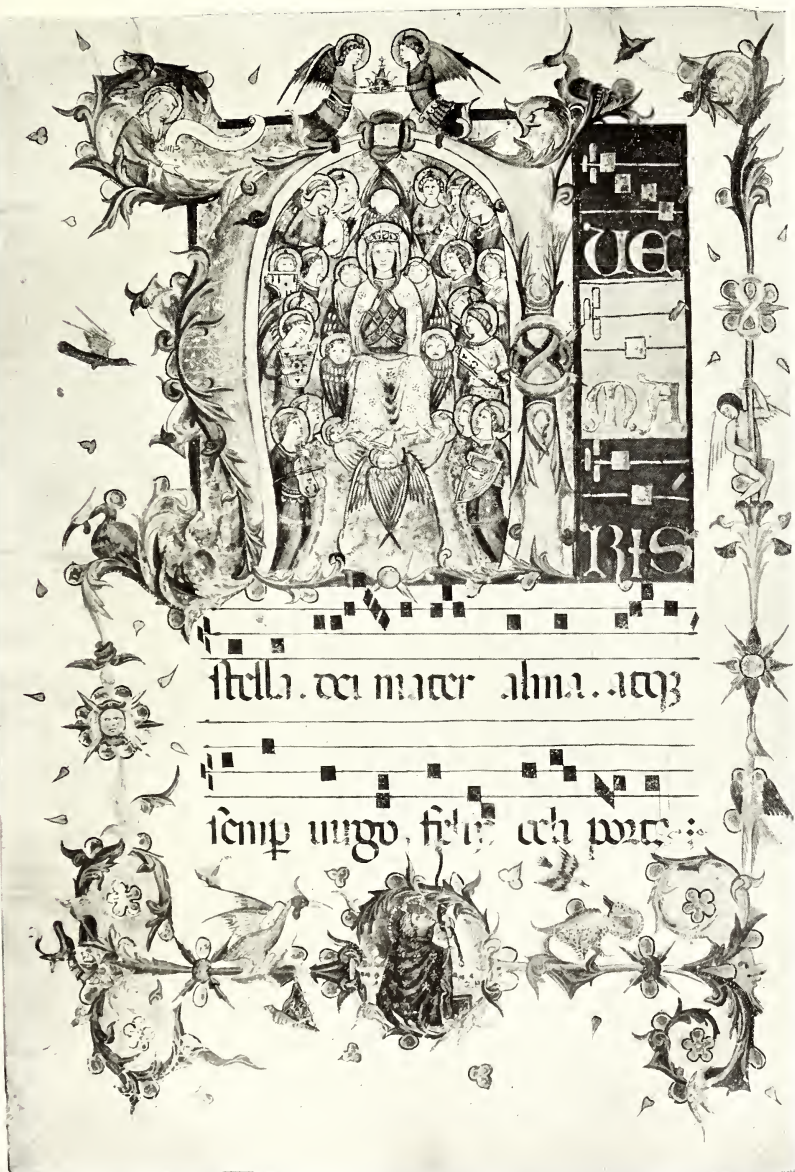 AUE
MA
RIS
stella. dei mater alma. atqꝫ
semꝑ uirgo. felix celi porta: